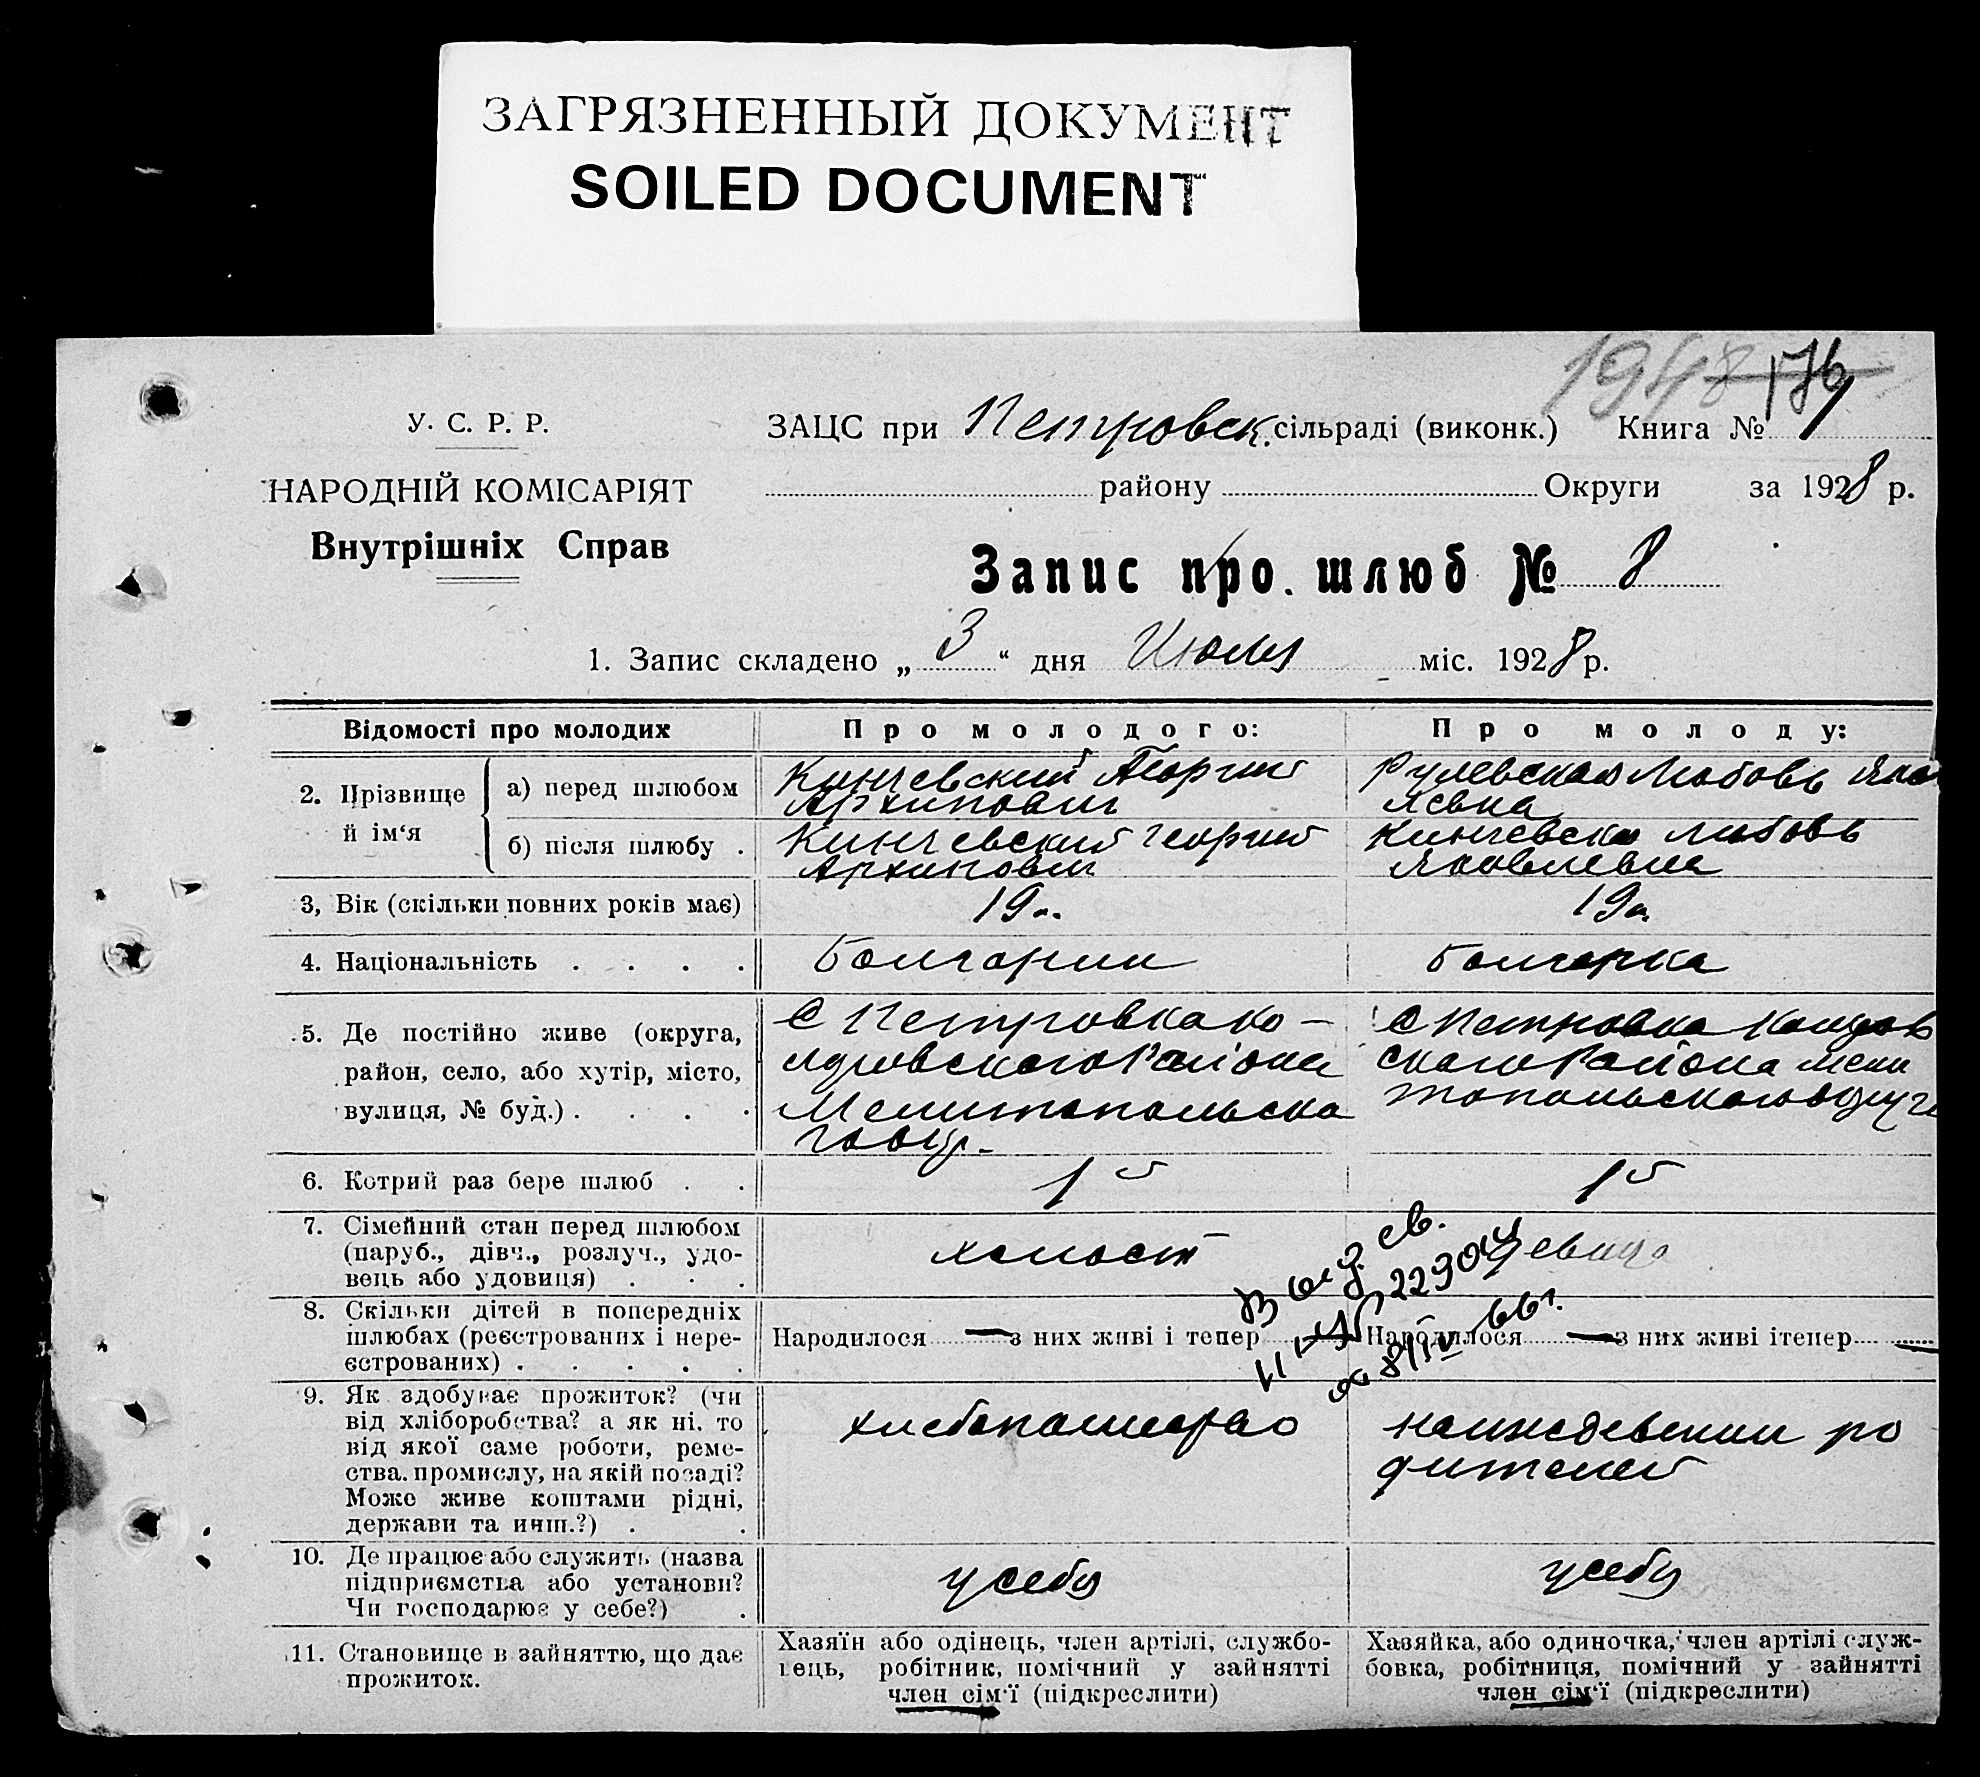 ЗАГРЯЗНЕННЫЙ ДОКУМЕНТ
SOILED DOCUMENT
1948 176
У. С. Р. Р.
НАРОДНІЙ КОМІСАРІЯТ
Внутрішніх Справ
ЗАЦС при Петровск. сільраді (виконк.) Книга №
району Округи за 1928 р.
Запис про шлюб № 8
1. Запис складено „ 3 “ дня Июля міс. 1928 р.
Відомості про молодих
Про молодого:
Про молоду:
2. Прізвище й ім‘я
а) перед шлюбом
Кинчевский Георгий
Архипович
Рулевская Любовь Яков
левна
б) після шлюбу .
Кинчевский Георгий
Архипович
Кинчевска Любовь
Яковлевна
3, Вік (скільки повних років має)
19 л.
19 л.
4. Національність . . . .
Болгарин
Болгорка
5. Де постійно живе (округа,
район, село, або хутір, місто,
вулиця, № буд.) . . . .
С Петровка Ко-
лдовского Района
Мелитопольско
го окр.
С Петровка Колдов
ского Района Мели
топольского округа
6. Котрий раз бере шлюб . .
1й
1й
7. Сімейний стан перед шлюбом
(паруб., дівч., розлуч., удо-
вець або удовиця) . . .
холост
девица
Выд. св.
229044
8/IV 66г.
8. Скільки дітей в попередніх
шлюбах (реєстрованих і нере-
єстрованих) . . . . .
Народилося — з них живі і тепер
Народилося — з них живі ітепер —
9. Як здобуває прожиток? (чи
від хліборобства? а як ні, то
від якої саме роботи, реме-
ства, промислу, на якій посаді?
Може живе коштами рідні,
держави та инш.?) . .
хлебопашество
на иждевении ро
дителей
10. Де працює або служить (назва
підприємства або установи?
Чи господарює у себе?) .
у себя
у себя
11. Становище в зайняттю, що дає
прожиток.
Хазяїн або одінець, член артілі, службо-
вець, робітник, помічний у зайнятті
член сім‘ї (підкреслити)
Хазяйка, або одиночка, член артілі служ-
бовка, робітниця, помічний у зайнятті
член сім‘ї (підкреслити)